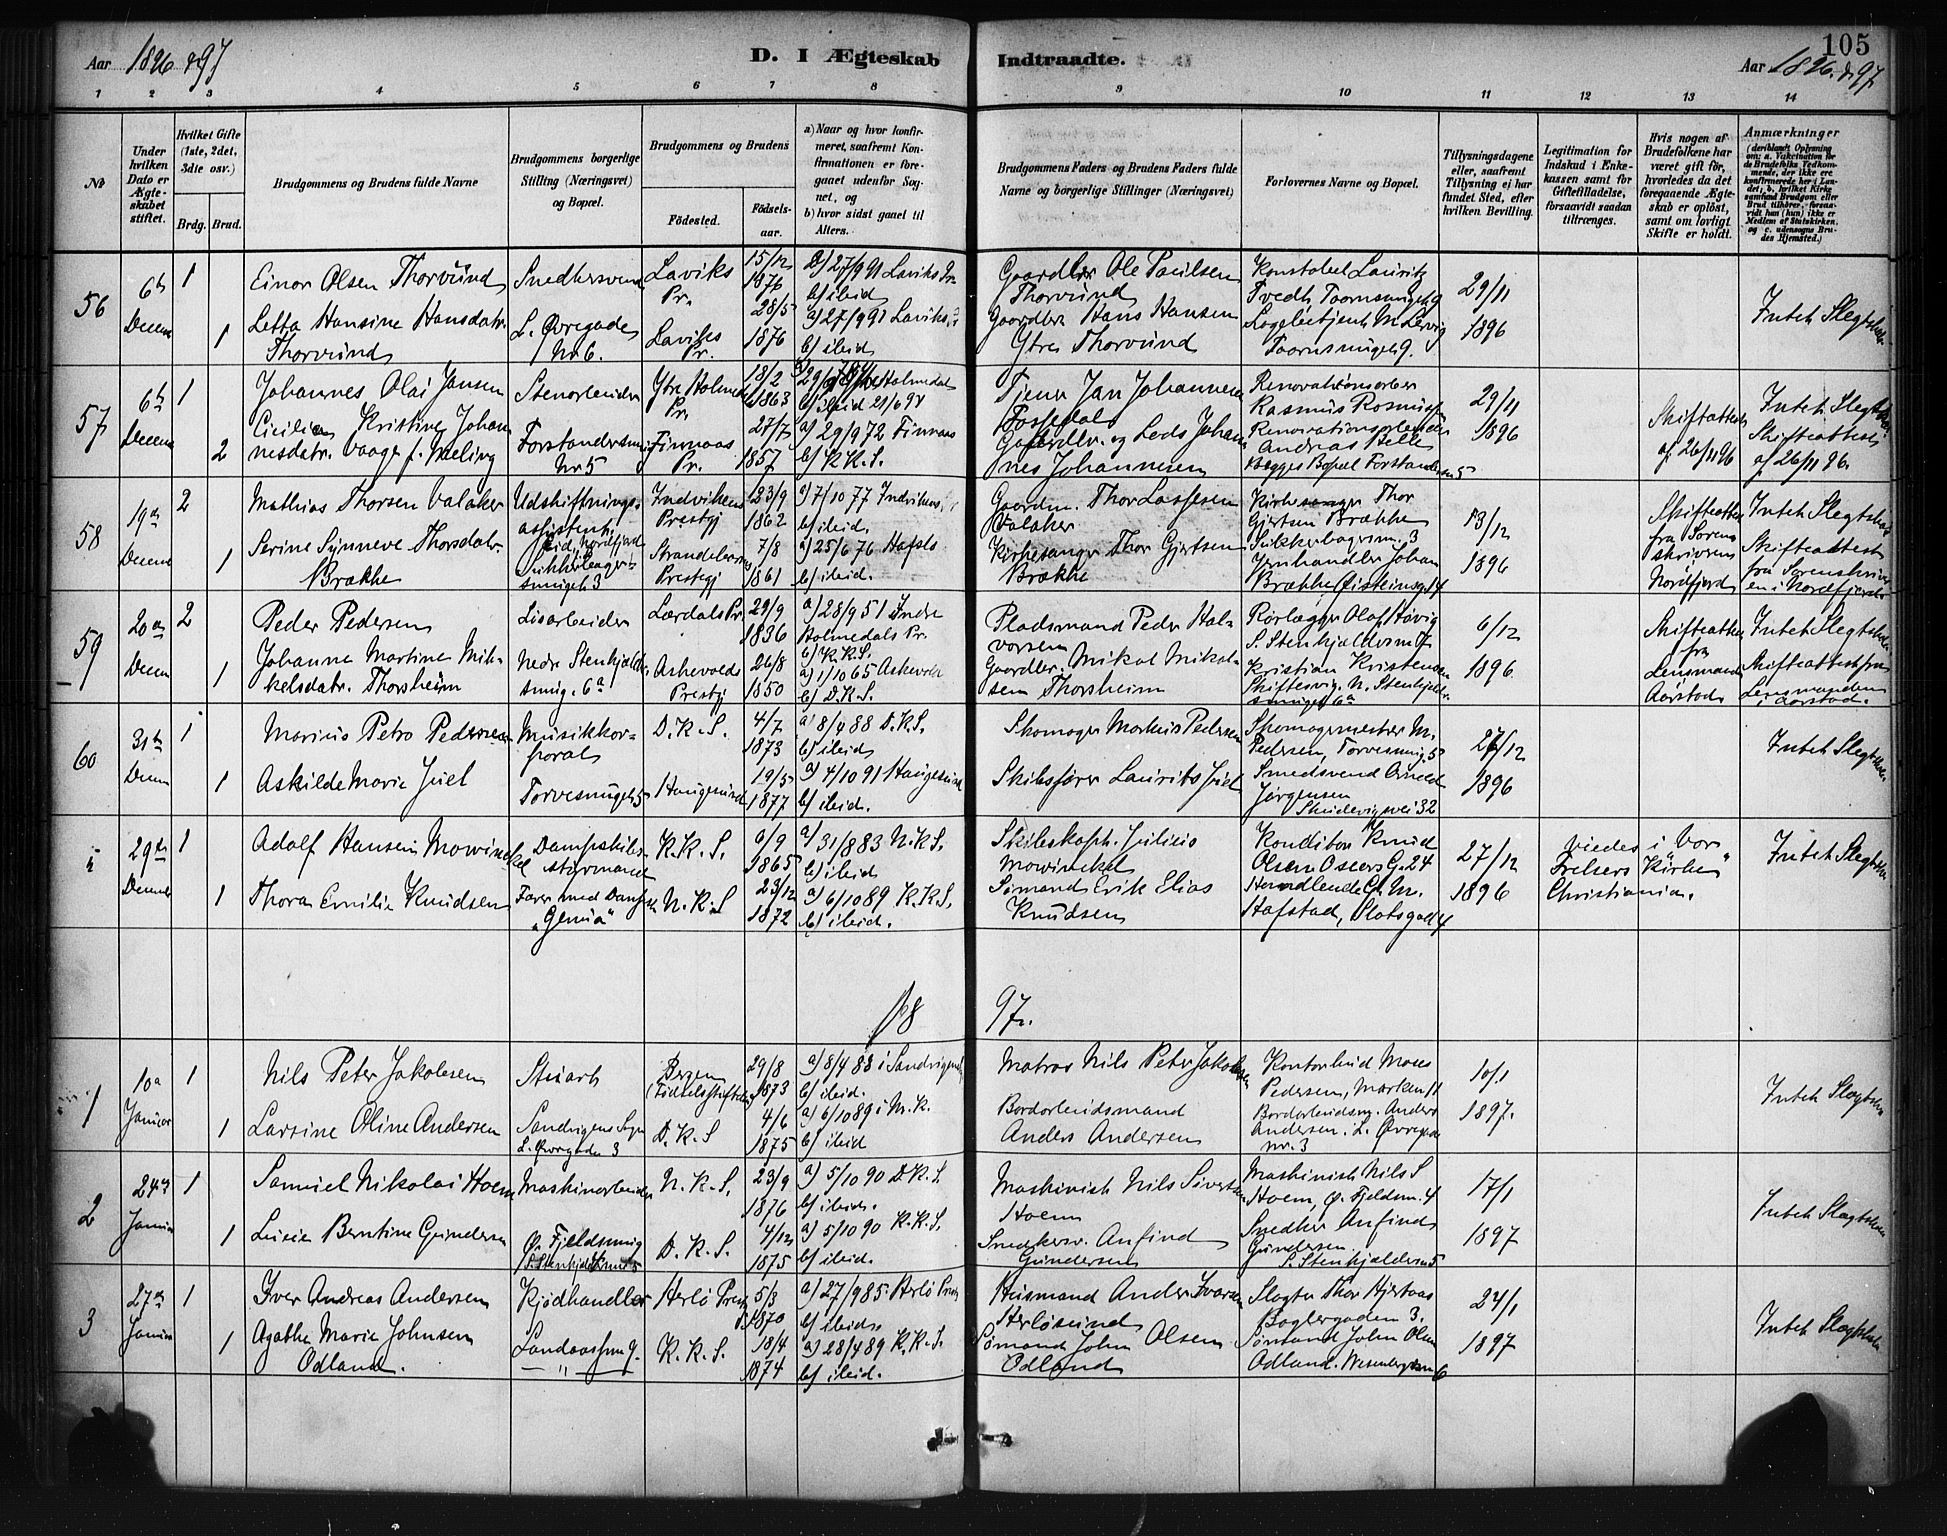 105
Aar 1896 & 97
D. I Ægteskab Indtraadte.
Aar 1896 & 97
1 2 3 4 5 6 7 8 9 10 11 12 13 14
No
Under hvilken Dato er Ægteskabet stiftet.
Hvilket Gifte (1ste, 2det, 3die osv.)
Brdg. Brud.
Brudgommens og Brudens fulde Navne
Brudgommens borgerlige Stilling (Næringsvei) og Bopæl.
Brudgommens og Brudens
Födested.
Födselsaar.
a) Naar og hvor konfirmeret, saafremt Konfirmationen er foregaaet udenfor Sognet, og
b) hvor sidst gaaet til Alters.
Brudgommens Faders og Brudens Faders fulde Navne og borgerlige Stillinger (Næringsvei)
Forlovernes Navne og Bopæl.
Tillysningsdagene eller, saafremt Tillysning ei har fundet Sted, efter hvilken Bevilling.
Legitimation for Indskud i Enkekassen samt for Giftefilladelse, forsaavidt saadan tiltrænges.
Hvis nogen af Brudefolkene har været gift för, hvorledes da det foregaaende Ægteskab er oplöst, samt om lovligt Skifte er holdt.
Anmærkninger (deriblandt Oplysning om: a. Vakcination for de Brudefolks Vedkommende, der ikke ere konfirmerede her i Landet, b. hvilket Kirkesamfund Brudgom eller Brud tilhörer, forsaavidt han (hun) ikke er Medlem af Statskirken, og c. udensogns Brudes Hjemsted.)
56
6te Decem
1
Einar Olsen Thorvund
Snedkersvend
Laviks Pr.
15/12 1876
a) 27/9 91 Laviks Pr.
b) ibid
Gaardbr Ole Paulsen Thorvund
Konstabel Lauritz Tvedt, Taarnsmuget 9
29/11 1896
Intet Slegtskab
1
Letta Hansine Hansdatr. Thorvund
L. Øvregade No 6.
Laviks Pr.
28/5 1876
a) 27/9 91 Laviks Pr
b) ibid
Gaardbr Hans Hansen Ytre Thorvund
M. Lervig Taarnsmuget 9.
57
6te Decem
1
Johannes Olai Jansen
Stenarbeider
Ytre Holmedal Pr.
18/2 1863
b) ibid 21/6 91
Tjener Jan Johannesen Fossedal
Renovationsarber Rasmus Rasmussen
29/11 1896
Skifteattest af 26/11 96
Intet Slegtskab
Skifteattest af 26/11 96.
2
Cicilia Kristine Johannesdatr. Vaage f. Mæling
Forstandersmug Nr 5
Finnaas Pr.
27/7 1857
a) 29/9 72 Finnaas
b) K.K.S.
Gaardbr. og Lods Johannes Johannesen
Renovationsarbeider Andreas Pelle
Begges Bopæl Forstandersm 5
58
19de Decem
2
Mathias Thorsen Valaker
Udskiftningsassistent, Eid, Nordfjord
Indvikens Prestgj
23/9 1862
a) 7/10 77 Indvikens
b) ibid.
Gaardm. Thor Lassesen Valaker
Kirkesanger Thor Gjertsen Brække Sukkerhagersm. 3
13/12 1896
Skifteattest fra Sorenskriveren Nordfjord
Intet Slegtskab
Skifteattest fra Sorenskriveren i Nordfjord
1
Serine Synneve Thorsdatr. Brække
Sukkerbagersmuget 3
Strandebarms Prestegj
7/8 1861
a) 25/6 76 Hafslo
b) ibid.
Kirkesanger Thor Gjertsen Brække
Jernhandler Johan Brække Øisteinsg 14
59
20de Decem
2
Peder Pedersen
Lisarbeider
Lærdals Pr.
29/9 1836
a) 28/9 51 Indre Holmedals Pr.
b) K.K.S.
Pladsmand Peder Halvorsen
Rørlægger Olaf Høvig S. Stenkjeldersm 17
6/12 1896
Skifteattest fra Lensmanden Aarstad
Intet Slegtskab
Skifteattest fra Lensmanden i Aarstad.
1
Johanne Martine Mikkelsdatr. Thorsheim
Nedr Stenkjeldersmug. 6a
Askevolds Prestgj
26/8 1850
a) 1/10 65 Askevold
b) D.K.S.
Gaardbr. Mikal Mikalsen Thorsheim
Kristian Kristensen Skiftesvig. N. Stenkjeldersmuget 6a
60
31te Decem
1
Marius Petro Pedersen
Musikkorporal
D.K.S.
4/7 1873
a) 8/4 88 D.K.S.
b) ibid
Skomager Markus Pedersen
Skomagermester M. Pedersen, Torvesmug. 5
27/12 1896
Intet Slegtskab
1
Askilde Marie Juel
Torvesmuget 5
Haugesund
19/5 1877
a) 4/10 91 Haugesund
b) ibid.
Skibsfører Laurits Juel
Smedsvend Arnold Jørgensen Skudevigsvei 32
29de Decem
1
Adolf Hansen Mowinckel
Dampskibsstyrmand
K.K.S.
9/9 1865
a) 31/8 83 N.K.S.
b) ibid
Skibskapt. Julius Mowinckel
Konditor Knud Olsen Osters G. 24
27/12 1896
Viedes i Vor Frelsers Kirke, Christiania.
Intet Slegtskab
1
Thora Emilie Knudsen
Farer med Dampsk "Genua"
N.K.S
23/12 1872
a) 6/10 89 K.K.S.
b) ibid.
Sømand Erik Elias Knudsen
Handlende G. M. Hafstad, Slotsgad 4
18 97.
1
10de Januar
1
Nils Peter Jakobsen
Stuart
Bergen (Fødselsstiftelsen)
29/8 1873
a) 8/4 88 i Sandvigens
b) ibid.
Matros Nils Peter Jakobsen
Kontorbud Moses Pedersen, Marken 11
10/1 1897.
Intet Slegtskab
1
Larsine Oline Andersen
Sandvigens Sogn L. Øvregaden 3
D.K.S
4/6 1875
a) 6/10 89 i N.K.
b) ibid
Bordarbeidsmand Anders Andersen
Bordarbeidsm. Anders Andersen i L. Øvregade nr. 3
2
24de Januar
1
Samuel Nikolai Hoem
Maskinarbeider
N.K.S.
23/9 1876
a) 5/10 90 D.K.S.
b) ibid.
Maskinist Nils Sivertsen Hoem
Maskinist Nils S Hoem, Ø. Fjeldsm. 4
17/1 1897
Intet Slegtskab
1
Lucie Berntine Gundersen
Ø. Fjeldsmug
S. Stenkjeldersmug 5
D.K.S.
4/12 1875
a) 5/10 90 K.K.S.
b) ibid.
Snedkersv. Anfind Gundersen
Snedker Anfind Gundersen S. Stenkjeldersm 5
3
27de Januar
1
Iver Andreas Andersen
Kjødhandler
Herlø Prestgj.
5/3 1870
a) 27/9 85 Herlø Prestgj
b) ibid.
Husmand Anders Ivarsen Herløsund
Slagter Thor Hjertaas Baglergaden 3.
24/1 1897
Intet Slegtskab
1
Agathe Marie Johnsen Odland.
Landaassven 9.
— " —
K.K.S.
18/4 1874
a) 28/4 89 K.K.S.
b) ibid.
Sømand John Olsen Odland
Sømand John Olsen Odland. Wesenbergsm 6